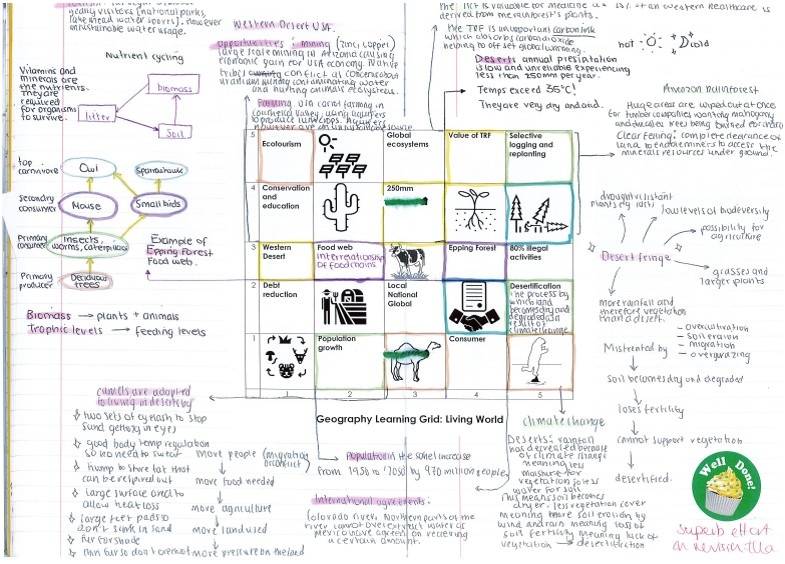 yearly visitors (national parks,
Lake mead water sports). However
unsustainable water usage.
Western Desert USA.
opportunities: mining (zinc, copper)
large scale mining in Arizona causing
economic gain for USA economy.
tribes owning conflict as concerns about
uranium mining contaminating water
and hurting animals ecosystems.
Farming USA
TRF is valuable for medicine as
derived from the rainforest's plants.
The TRF is un important carbon sink
which absorbs carbon dioxide
helping to off set global warming.
hot
cold
Deserts annual precipitation
is low and unreliable experiencing
less than 250mm per year.
Temps exceed 35°C!
They are very dry and arid.
Amazon Rainforest
Huge areas are wiped out at once
for timber companies wanting mahogany
Clear felling: complete clearance of
land, to enable miners to access the
minerals resources under ground.
Nutrient cycling
Vitamins and
minerals are
the nutrients.
They are
required
for organisms
to survive.
Biomass
Litter
Soil
top
carnivore
Owl
Sparrowhawk
Secondary
consumer
Mouse
Small birds
Primary
consumer
Insects,
worms, caterpillars
Primary
producer
Deciduous
trees
Example of
Epping Forest
Food web.
Biomass → plants + animals
Trophic levels → feeding levels
5
Ecotourism
Global
ecosystems
Value of TRF
Selective
logging and
replanting
4
Conservation
and education
250mm
3
Western
Desert
Food web
interrelationship
of food chains
Epping Forest
80% illegal
activities
2
Debt
reduction
Local
National
Global
Desertification
The process by
which land
becomes dry and
degraded as a
result of
climate change
1
Population
growth
Consumer
1 2 3 4 5
Geography Learning Grid: Living World
drought resistant
plants
low levels of biodiversity
possibility for
agriculture
Desert fringe
grasses and
larger plants
more rainfall and
therefore vegetation
than a desert.
Mistreated by
- overcultivation
- soil erosion
- migration
- overgrazing
Soil becomes dry and degraded
loses fertility
cannot support vegetation
desertified.
camels are adapted
to living in deserts by
two sets of eyelash to stop
sand getting in eyes
good body temp regulation
so no need to sweat
hump to store fat that
can be respired out
large surface area to
allow heat loss
large feet pads to
don't sink in sand
fur for shade
thin fur so don't overheat
more people (migration
or conflict)
more food needed
more agriculture
more land used
more pressure on the land
Population in the sahel increase
from 1950 to '2050' by 970 million people
International agreements:
Colorado river. Northern parts of the
river cannot overextract water as
mexico have agreed on receiving
a certain amount.
climate change
Deserts: rainfall
has decreased because
of climate change
meaning less
moisture for
vegetation so less
water for soil
This means soil becomes
dryer. less vegetation cover
meaning more soil erosion by
wind and rain meaning loss of
soil fertility meaning lack of
vegetation → desertification
Well Done!
Superb effort
on revision